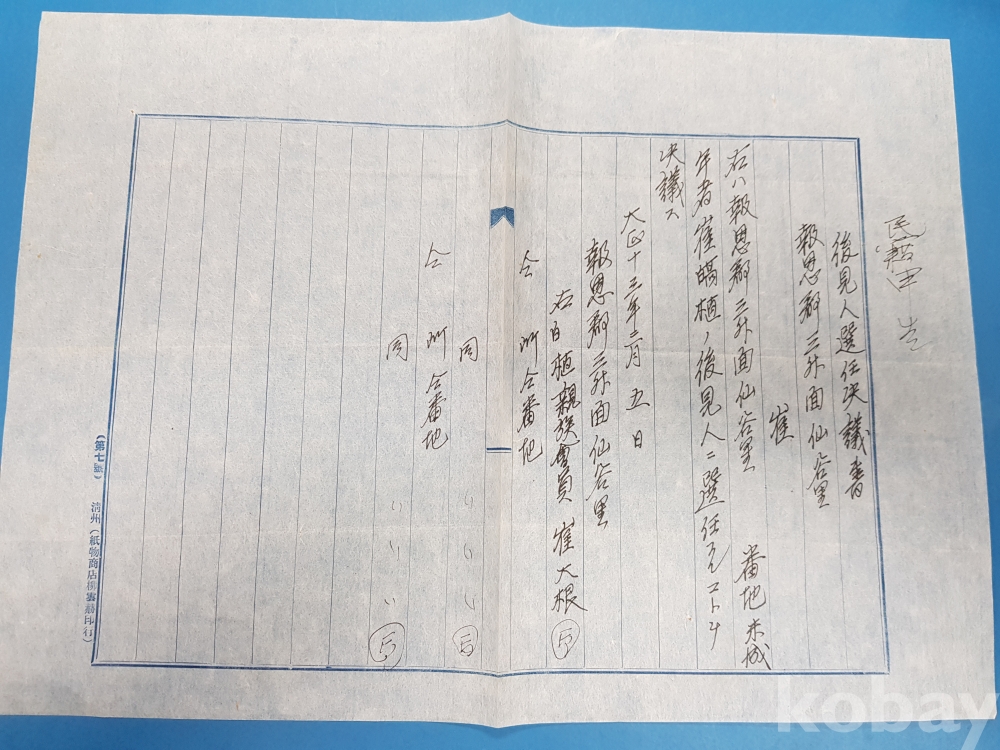 民籍
後見人選任决議書
報恩郡三外面仙谷里
崔
右ハ報恩郡三外面仙谷里 番地未成
年者崔 植ノ後見人ニ選任スルコトヲ
决議ス
大正十三年二月五日
報恩郡三外面仙谷里
右 植親族會員 崔大根 印
仝所仝番地
同 印
仝所仝番地
同 印
(第七號) 淸州(紙物商店 印行)
kobay